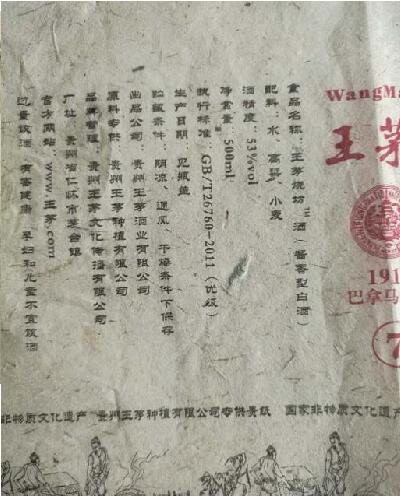 食品名称：王茅烧坊酒（酱香型白酒）
配料：水、高粱、小麦
酒精度：53%vol
净含量：500ml
执行标准：GB/T26760-2011（优级）
生产日期：见瓶盖
贮藏条件：阴凉、通风、干燥条件下保存
出品公司：贵州王茅酒业有限公司
原料专供：贵州王茅种植有限公司
品牌管理：贵州王茅文化传播有限公司
厂址：贵州省仁怀市茅台镇
官方网站：www.王茅.com
过量饮酒 有害健康 孕妇和儿童不宜饮酒
WangMa
王茅
191
巴拿马
7
非物质文化遗产 贵州王茅种植有限公司专供贵纸 国家非物质文化遗